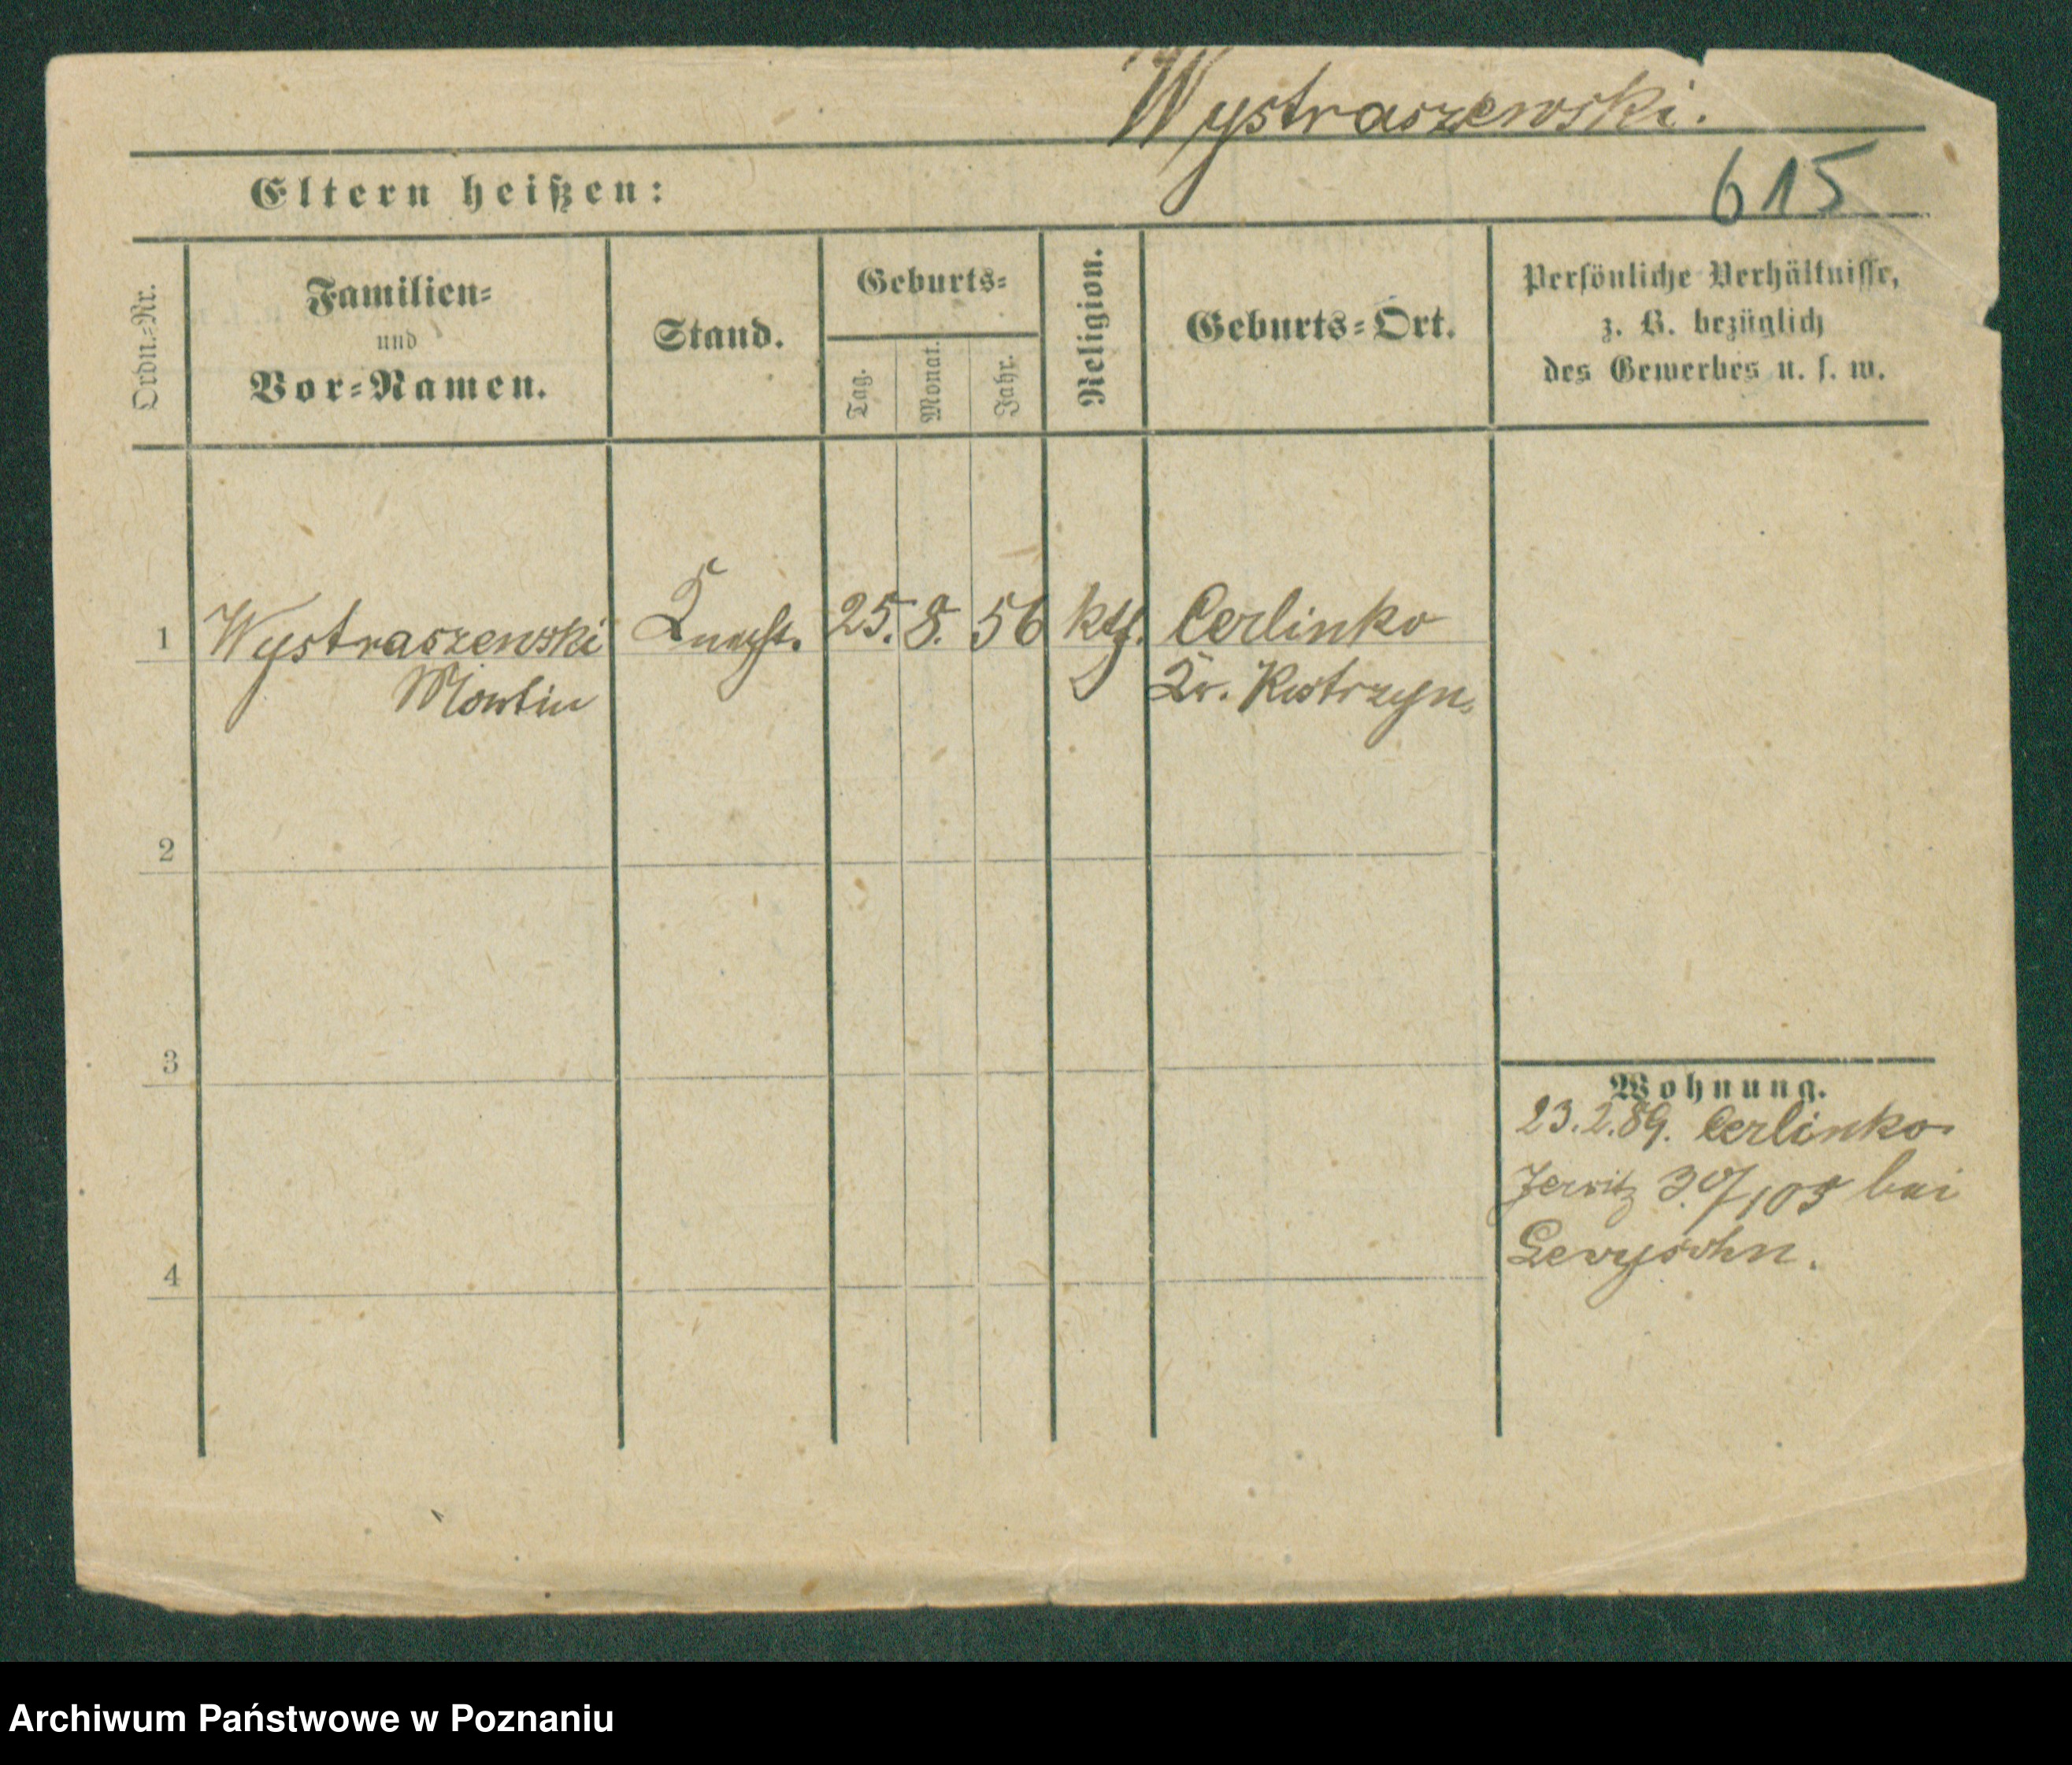 Wystraszewski.
Eltern heißen:
615
Ordn.-Nr.
Familien-
und
Vor-Namen.
Stand.
Geburts-
Tag.
Monat.
Jahr.
Religion.
Geburts-Ort.
Persönliche Verhältnisse,
z. B. bezüglich
des Gewerbes u. s. w.
1 Wystraszewski Knecht. 25. 8. 56 kth. Cerlinko
Martin Kr. Kostrzyn.
2
3
4
Wohnung.
23.2.89. Cerlinko
Jersitz 30/105 bei
Levysohn.
Archiwum Państwowe w Poznaniu